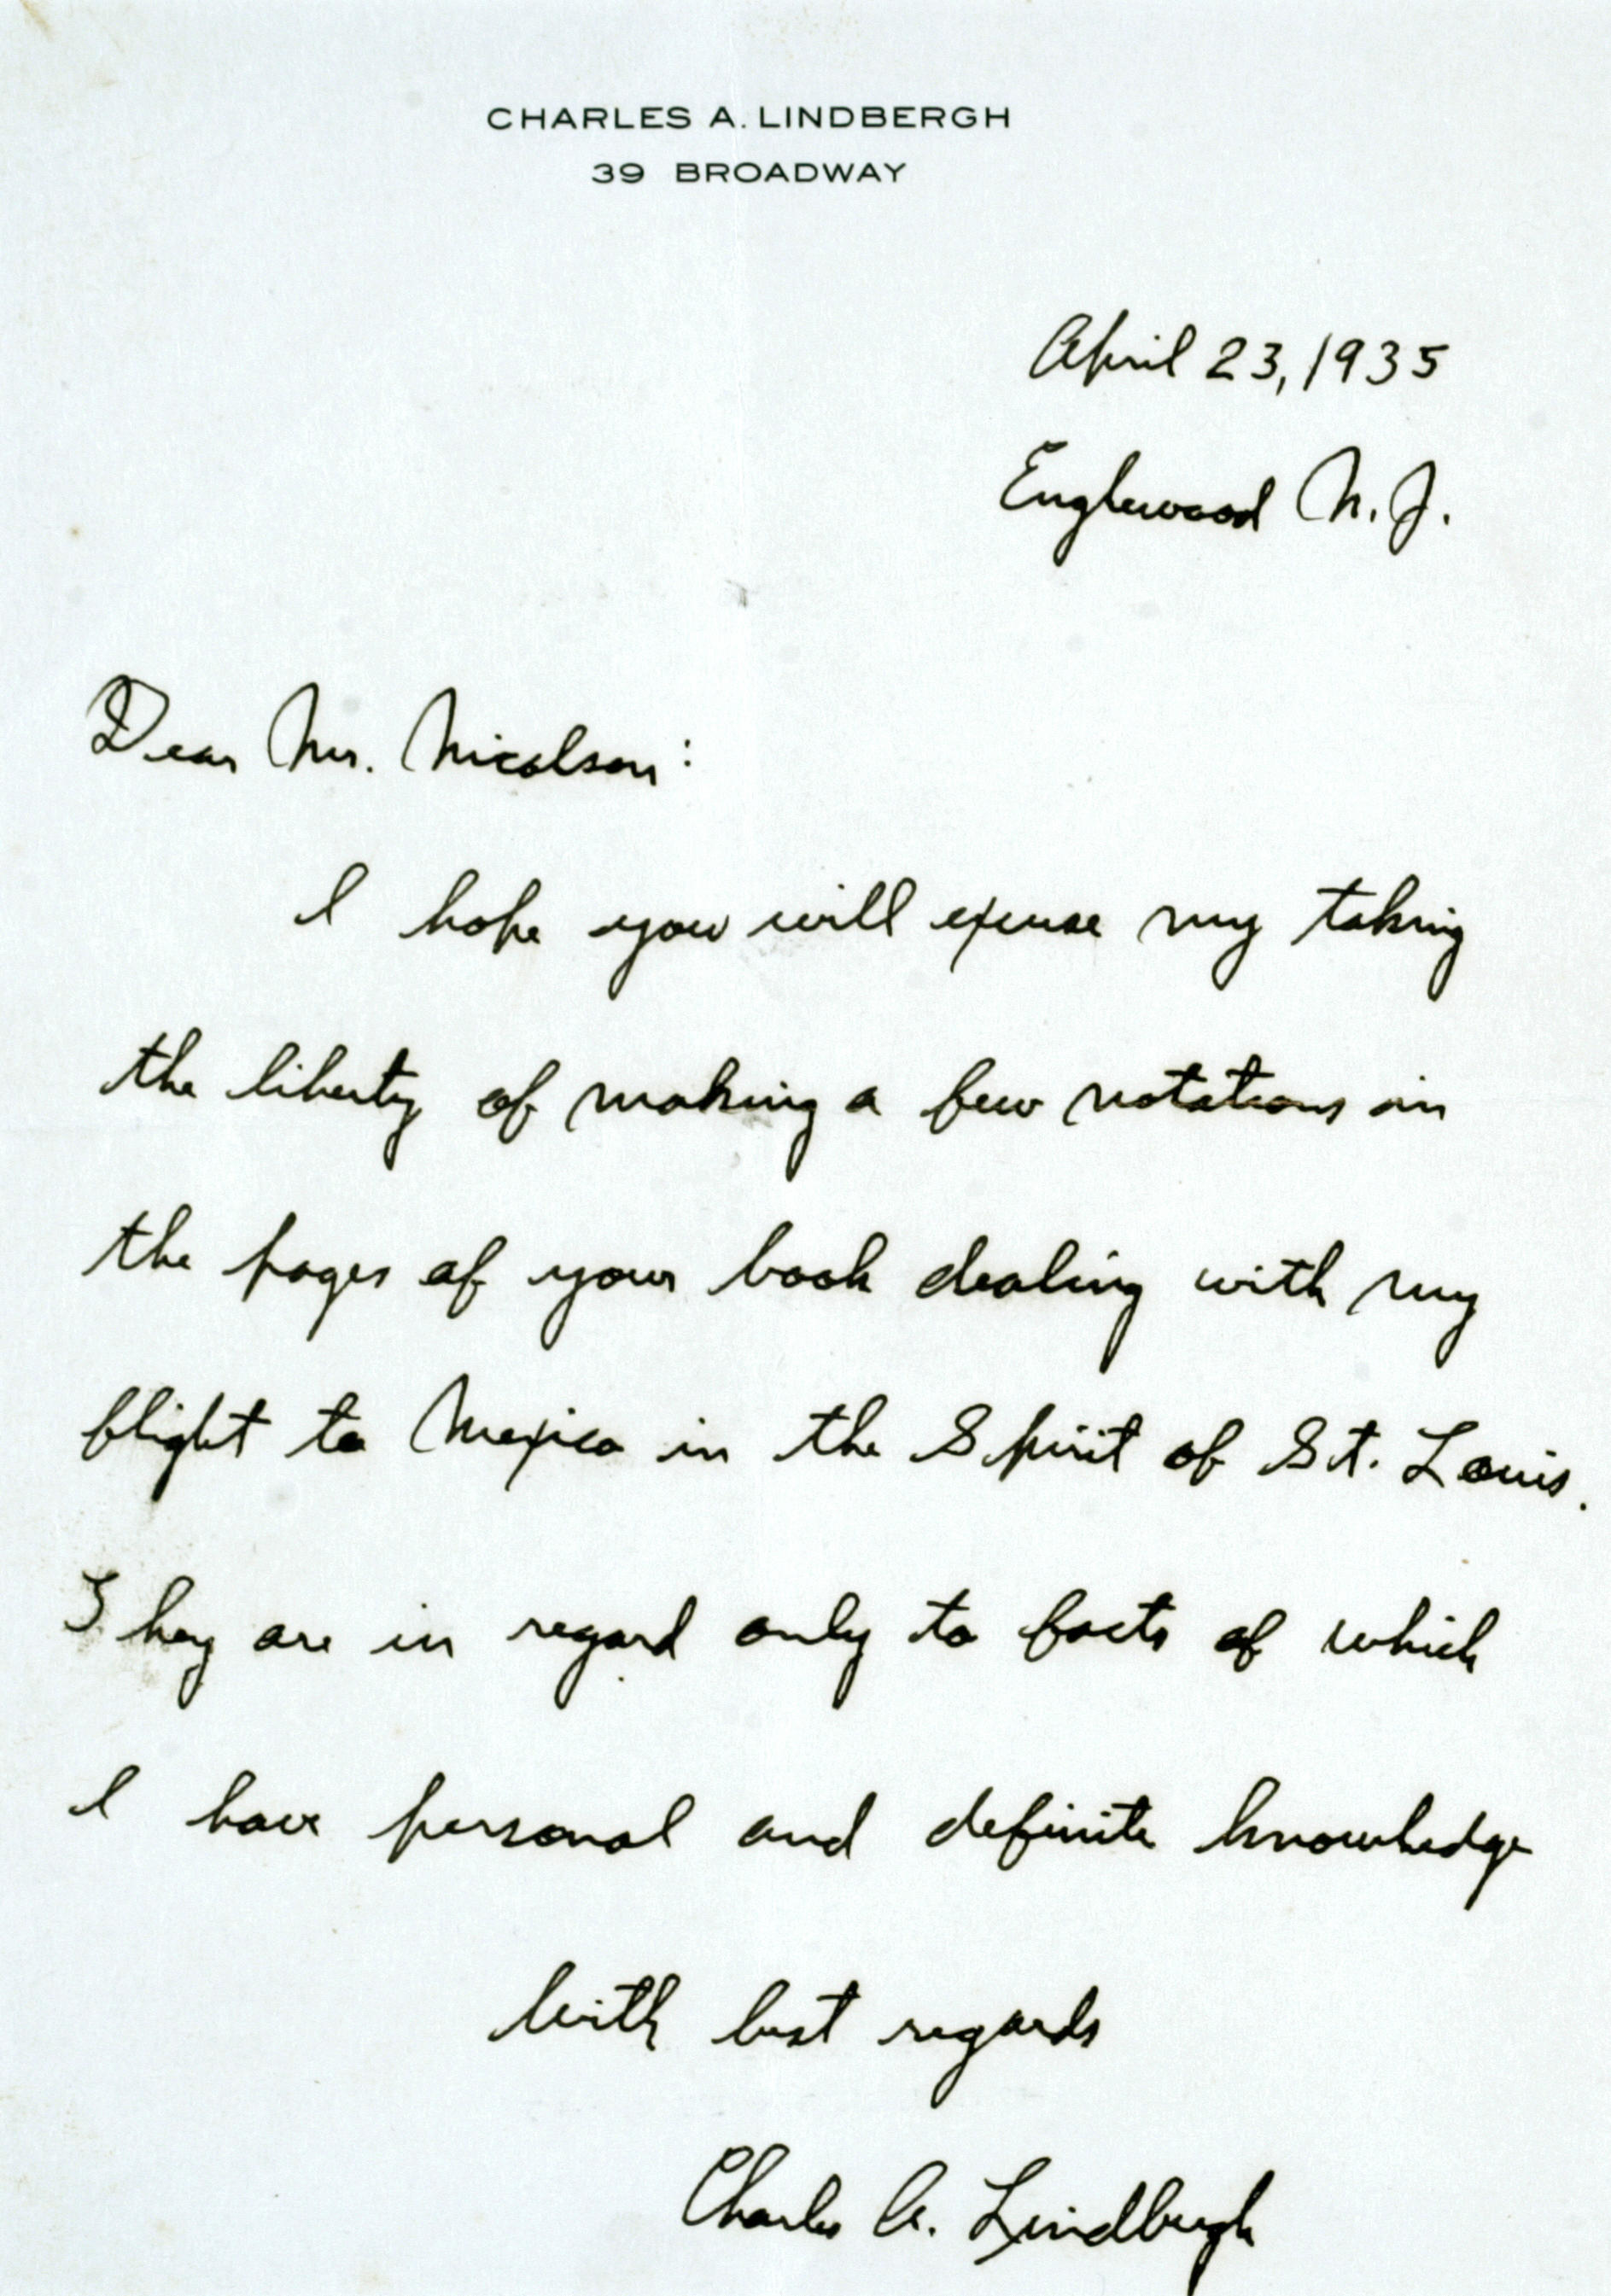 CHARLES A. LINDBERGH
39 BROADWAY
April 23, 1935
Englewood N. J.
Dear Mr. Nicolson:
I hope you will excuse my taking
the liberty of making a few notations in
the pages of your book dealing with my
flight to Mexico in the Spirit of St. Louis.
They are in regard only to facts of which
I have personal and definite knowledge
With best regards
Charles A. Lindbergh